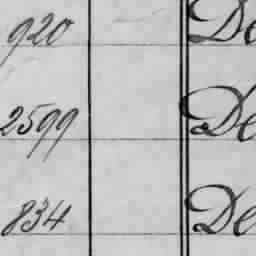 920 De
2599 De
834 De